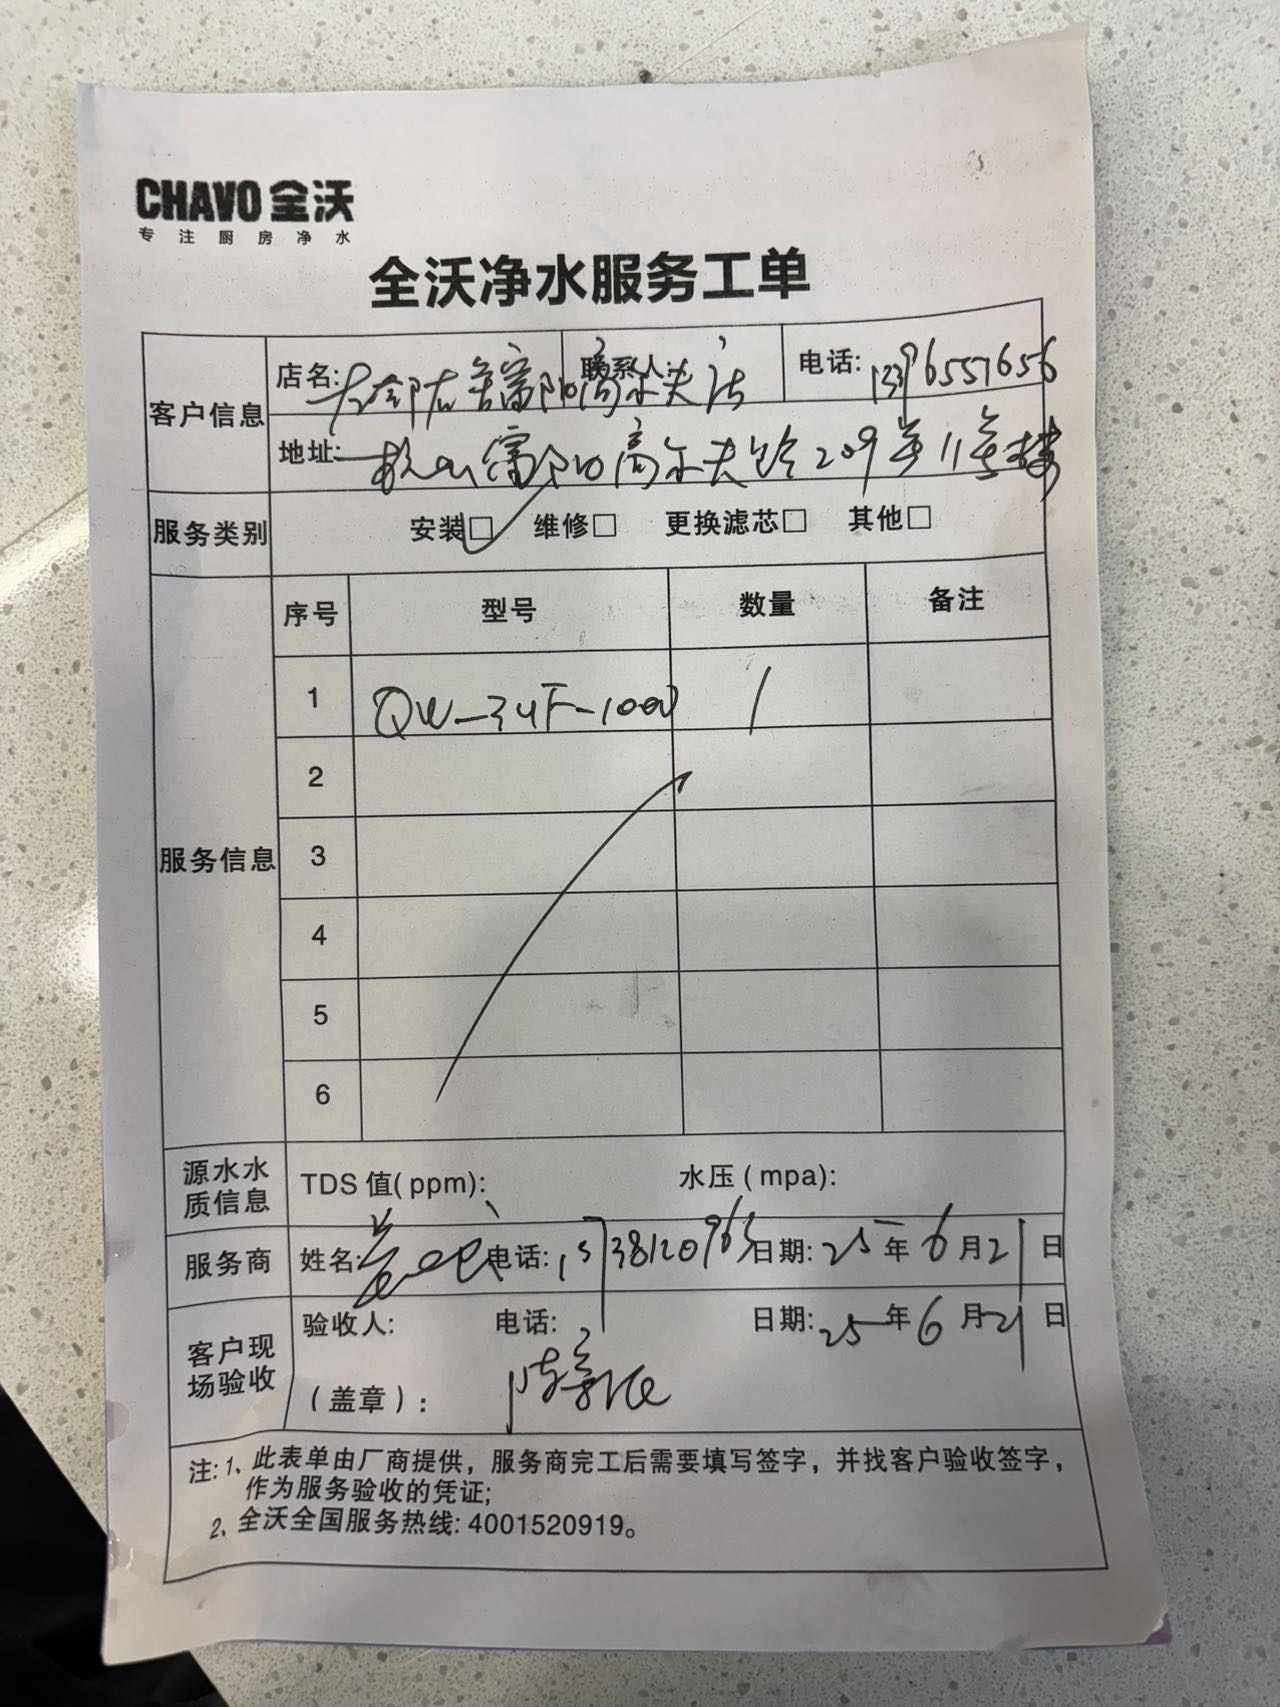 CHAVO 全沃
专注厨房净水
全沃净水服务工单
客户信息
店名: 富阳高尔夫店 联系人: 电话: 13396557656
地址: 杭州富阳高尔夫路209号11号楼
服务类别 安装☑ 维修□ 更换滤芯□ 其他□
服务信息
序号 型号 数量 备注
1 QW-3UF-1000 1
2
3
4
5
6
源水水质信息 TDS 值(ppm): 水压(mpa):
服务商 姓名: 电话: 日期: 25年6月21日
客户现场验收 验收人: 电话: 日期: 25年6月21日
(盖章):
注: 1、此表单由厂商提供，服务商完工后需要填写签字，并找客户验收签字，
作为服务验收的凭证;
2、全沃全国服务热线: 4001520919。